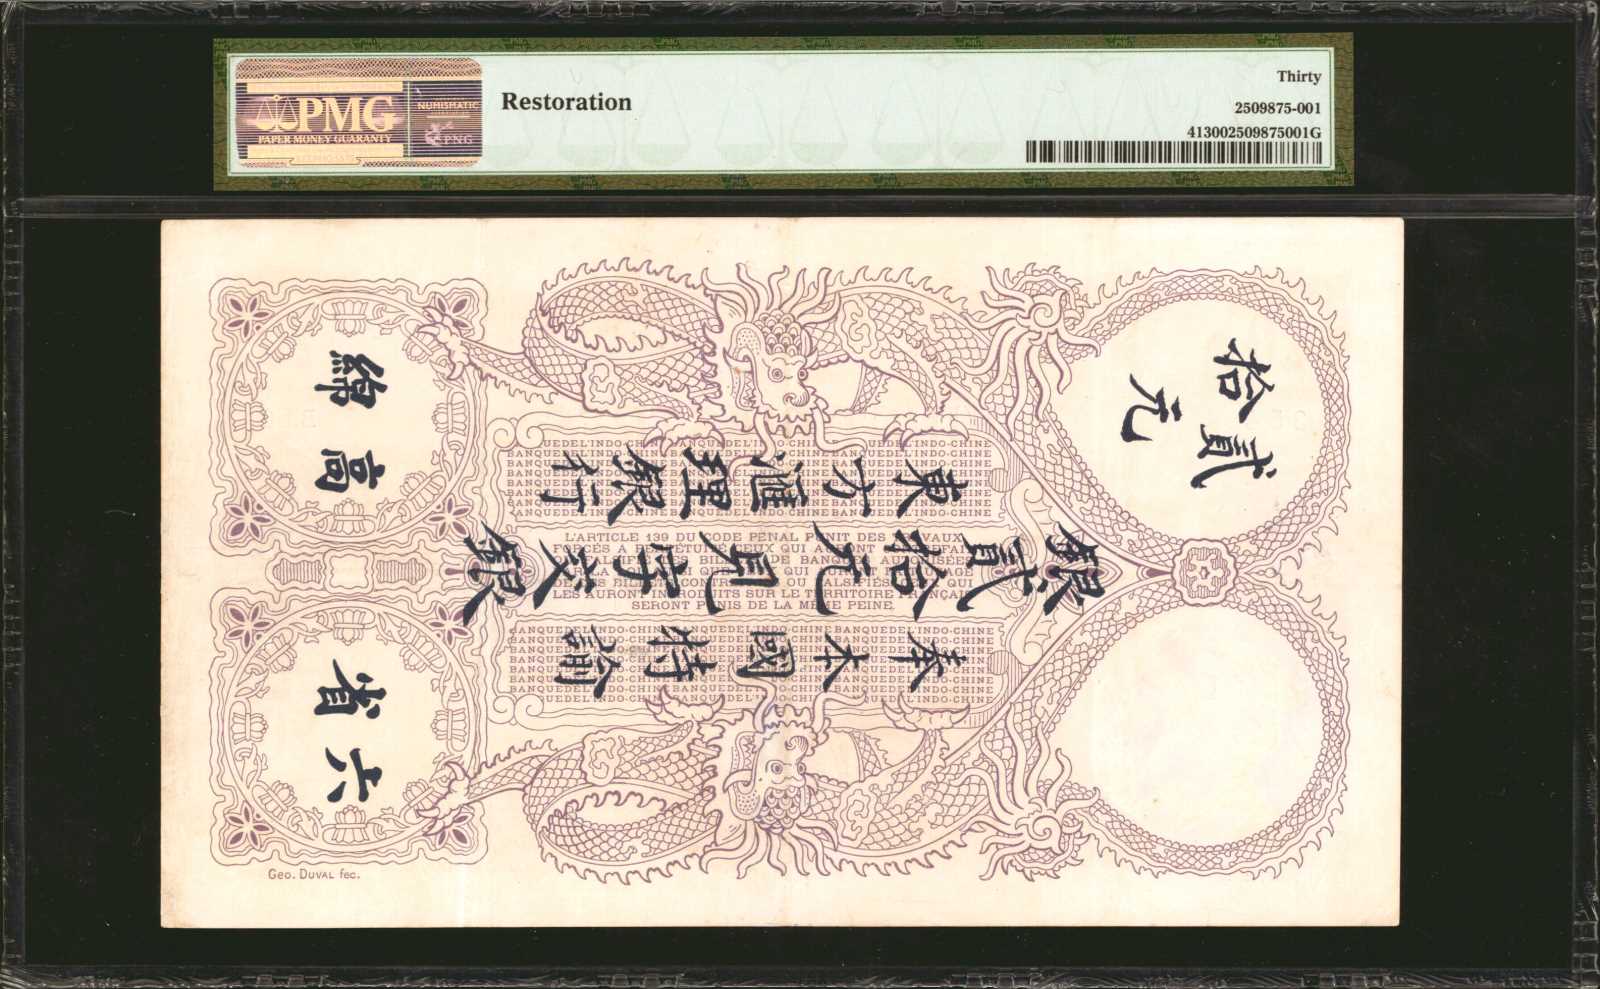 PMG
PAPER MONEY GUARANTY
NUMISMATIC
PNG
Restoration
Thirty
2509875-001
413002509875001G
貳拾
元
東方滙理銀行
銀貳拾元見字交銀
奉本國特諭
六省
高綿
BANQUE DE L'INDO-CHINE BANQUE DE L'INDO-CHINE BANQUE DE L'INDO-CHINE
L'ARTICLE 139 DU CODE PÉNAL PUNIT DES TRAVAUX
FORCÉS A PERPÉTUITÉ CEUX QUI AURONT CONTREFAIT
BILLETS DE BANQUE AUTORISÉES
LES AURONT INTRODUITS SUR LE TERRITOIRE FRANÇAIS
SERONT PUNIS DE LA MÊME PEINE.
BANQUE DE L'INDO-CHINE BANQUE DE L'INDO-CHINE BANQUE DE L'INDO-CHINE
GEO. DUVAL fec.